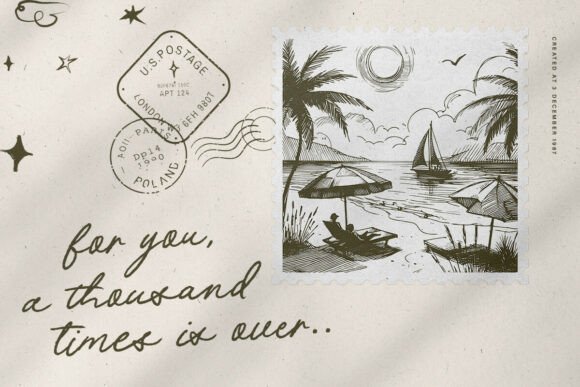 U.S.POSTAGE
APT 124
LONDON W2 6FH 9807
AOII-PARTS
Dp14
1990
POLAND
CREATED AT 3 DECEMBER 1987
for you,
a thousand
times is over..